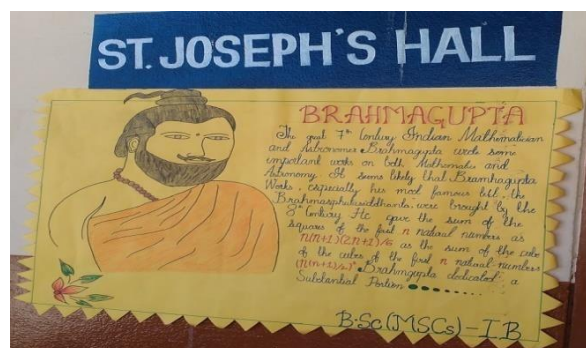 ST. JOSEPH'S HALL
BRAHMAGUPTA
The great 7th Century Indian Mathematician
and Astronomer Brahmagupta wrote some
important works on both Mathematics and
Astronomy. It seems likely that Bramhagupta
Works, especially his most famous text, the
Brahmasphutasiddhanta, were brought by the
8th Century He gave the sum of the
squares of the first n natural numbers as
n(n+1)(2n+1)/6 as the sum of the cube
of the cubes of the first n natural numbers
(n(n+1)/2)² Brahmgupta dedicated a
Substantial Portion
B.Sc(MSCs)-IB